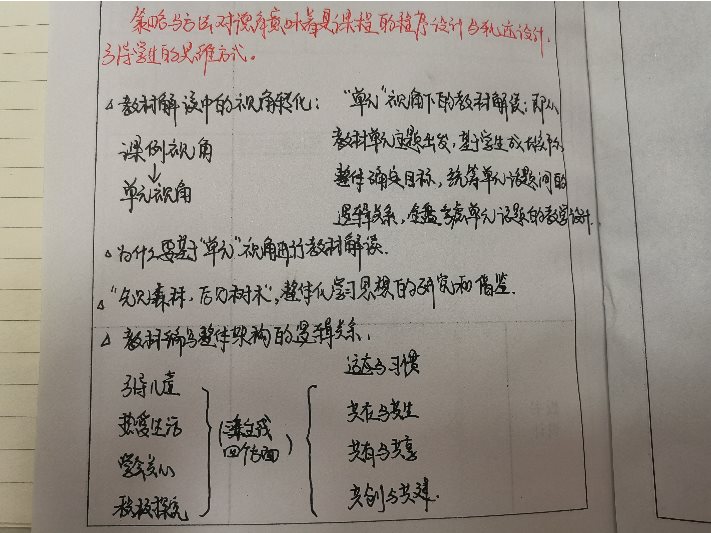 策略与方法对课角意味着是课程的程序设计与轨迹设计,
引导学生的思维方式。
△教材解读中的视角转化:
课例视角
↓
单元视角
“单元”视角下的教材解读:即从
教材单元主题出发,基于学生成长
整体确定目标,统筹单元话题间的
逻辑关系,全盘考虑单元话题的教学设计.
△为什么要基于“单元”视角进行教材解读.
△“先见森林,后见树木”,整体化学习思想的研究和借鉴.
△教材编写整体架构的逻辑关系.
引导儿童
热爱生活
学会关心
积极探究
(主线
四个方面)
适应与习惯
共在与共生
共有与共享
共创与共建.